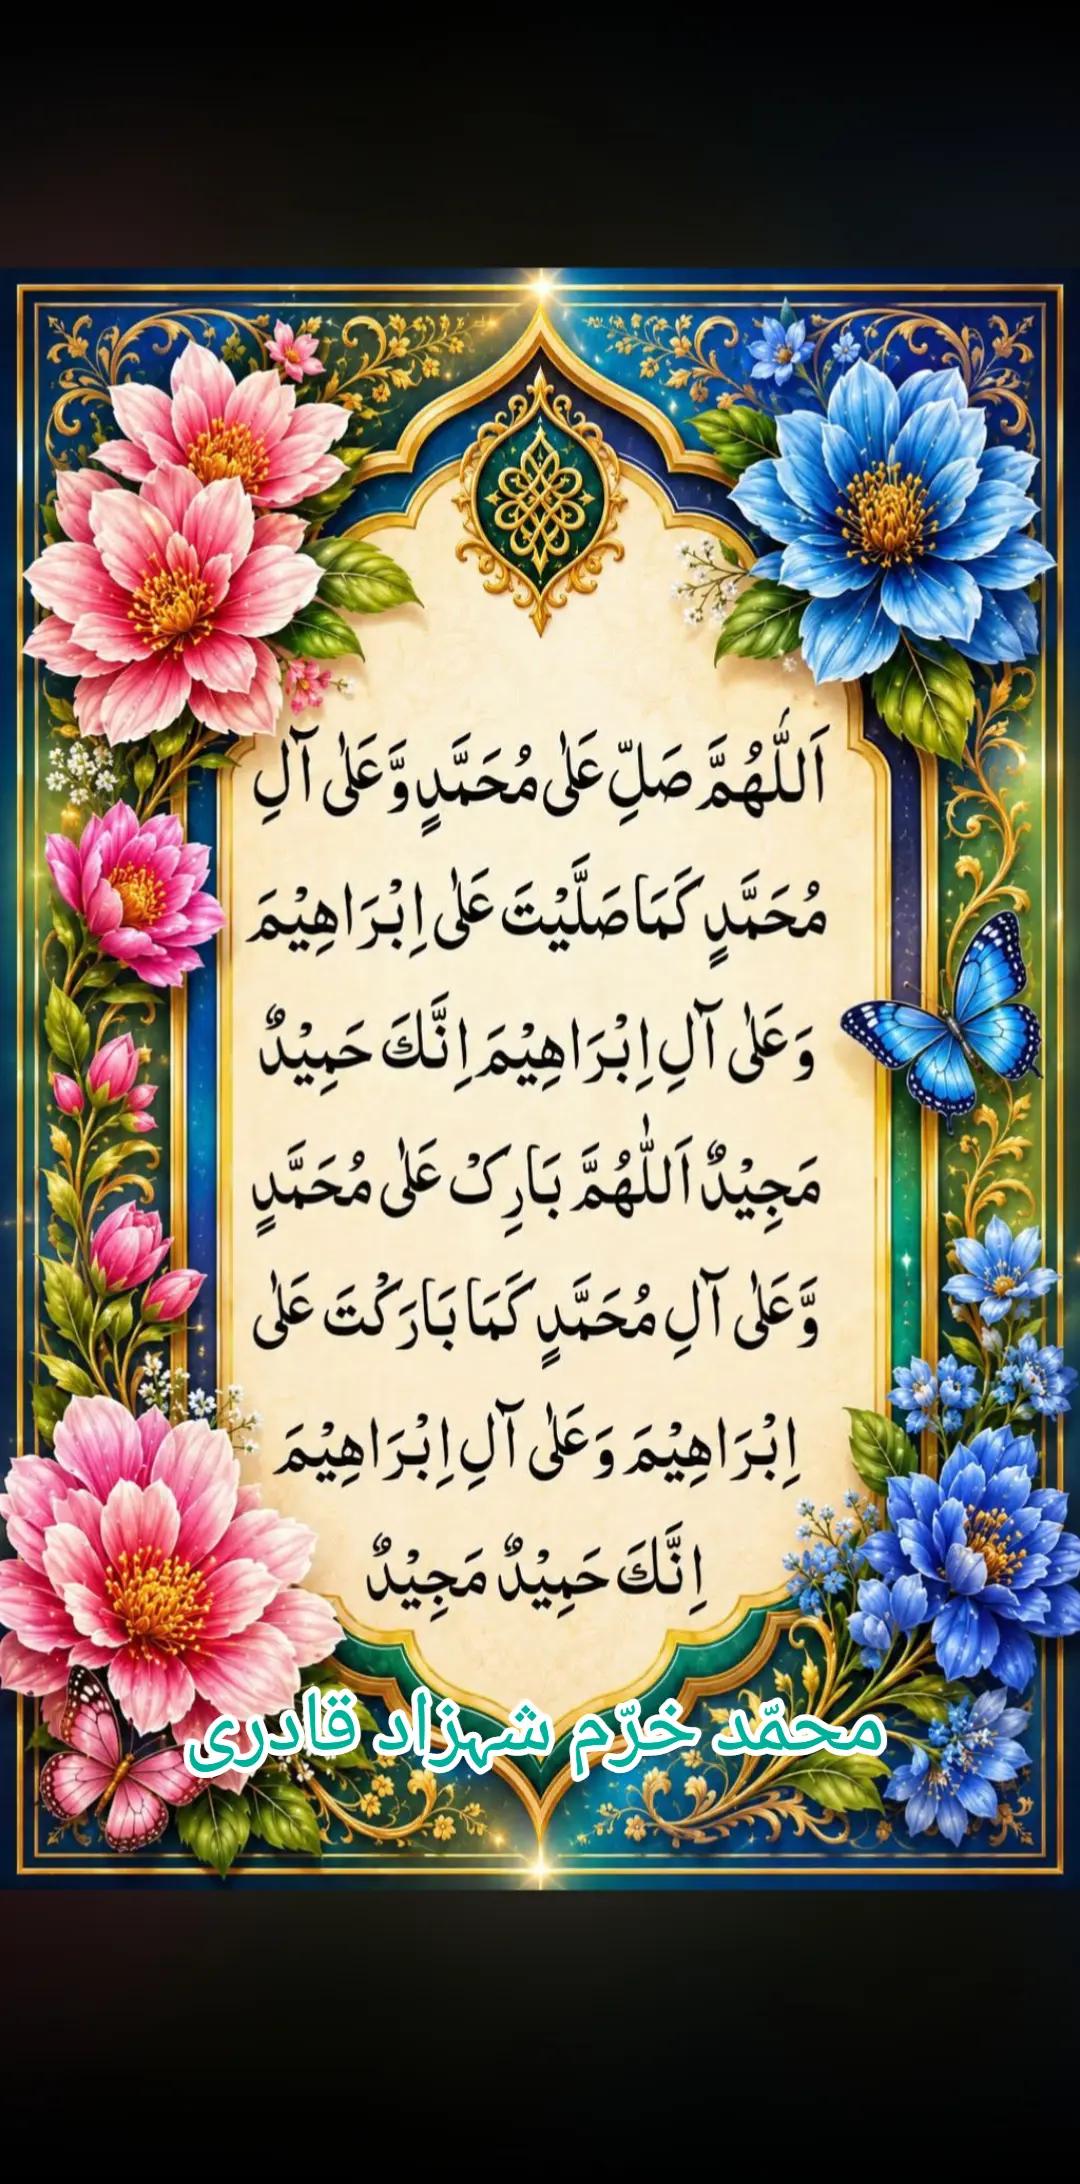 اَللّٰهُمَّ صَلِّ عَلٰى مُحَمَّدٍ وَّعَلٰى آلِ
مُحَمَّدٍ كَمَا صَلَّيْتَ عَلٰى اِبْرَاهِيْمَ
وَعَلٰى آلِ اِبْرَاهِيْمَ اِنَّكَ حَمِيْدٌ
مَجِيْدٌ اَللّٰهُمَّ بَارِكْ عَلٰى مُحَمَّدٍ
وَّعَلٰى آلِ مُحَمَّدٍ كَمَا بَارَكْتَ عَلٰى
اِبْرَاهِيْمَ وَعَلٰى آلِ اِبْرَاهِيْمَ
اِنَّكَ حَمِيْدٌ مَجِيْدٌ
محمّد خرّم شہزاد قادری